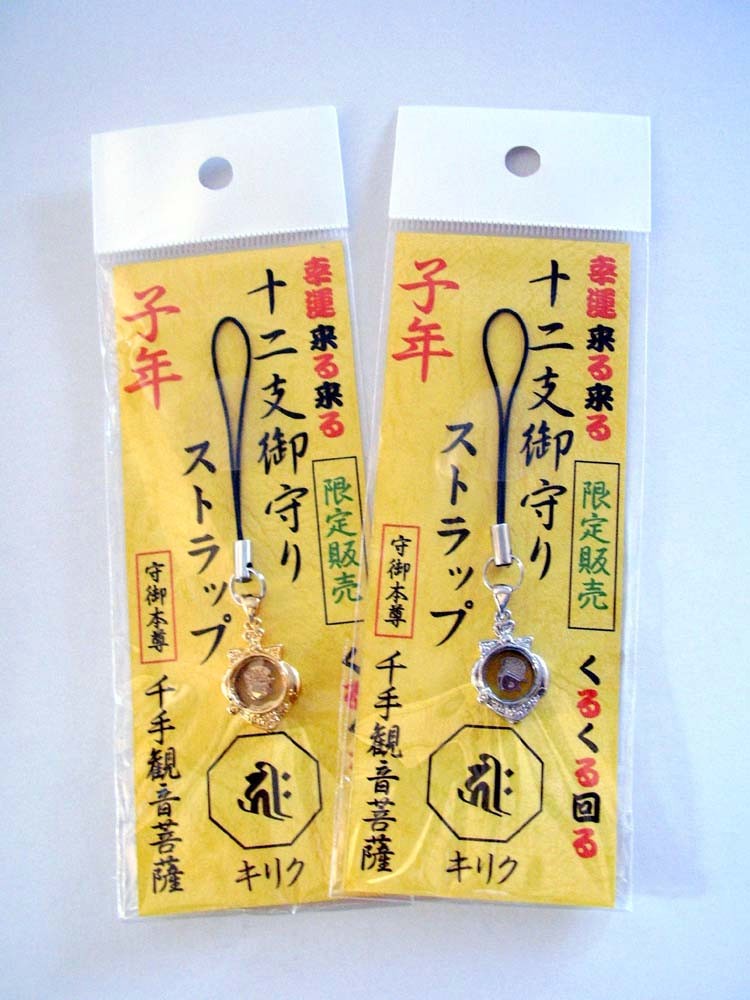 幸運来る来る
限定販売
く
十二支御守り
ストラップ
子年
守御本尊
千手観音菩薩
キリク
幸運来る来る
限定販売
くるくる回る
十二支御守り
ストラップ
子年
守御本尊
千手観音菩薩
キリク